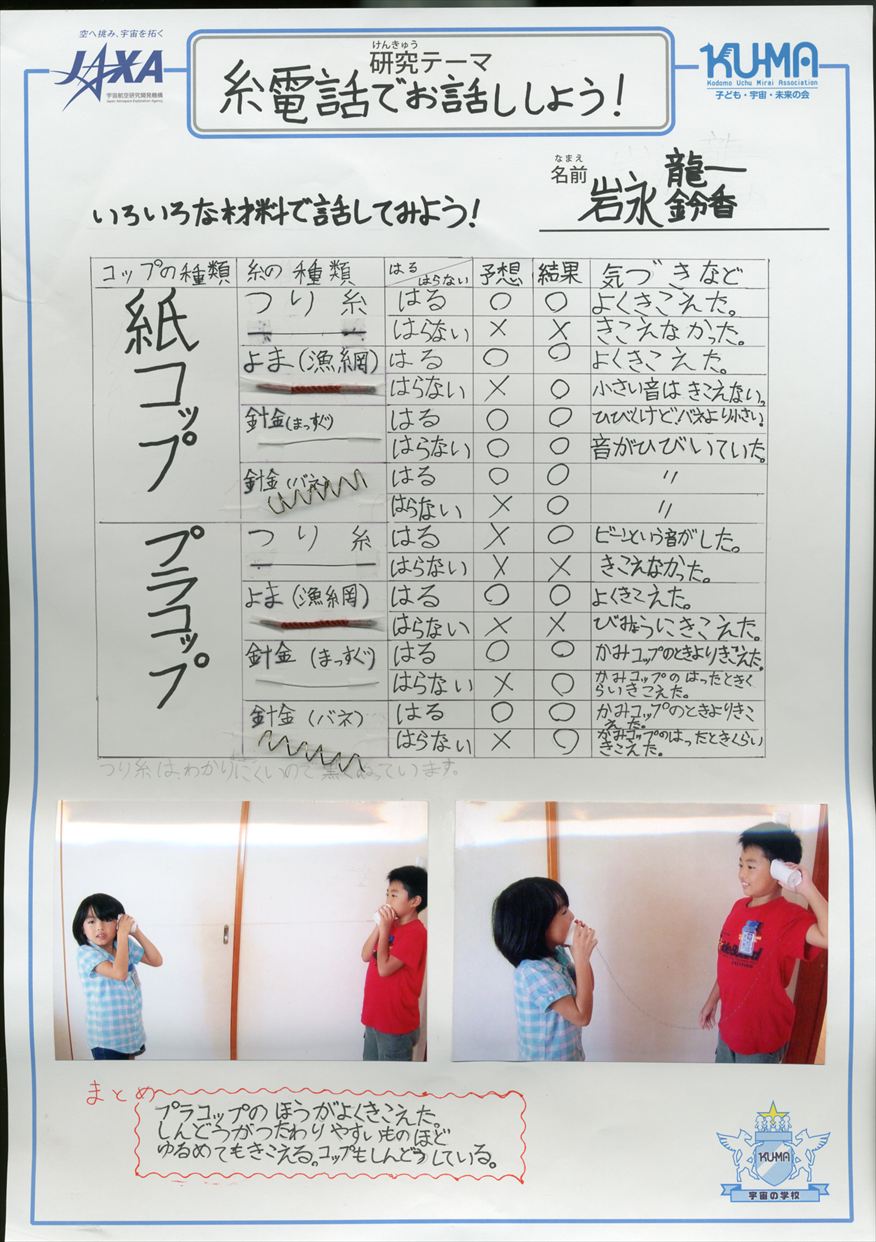 空へ挑み、宇宙を拓く
JAXA
宇宙航空研究開発機構
Japan Aerospace Exploration Agency
けんきゅう
研究テーマ
糸電話でお話ししよう!
KU-MA
Kodomo Uchu Mirai Association
子ども・宇宙・未来の会
なまえ
名前
岩永 龍一
鈴香
いろいろな材料で話してみよう!
コップの種類 糸の種類 はる はらない 予想 結果 気づきなど
紙コップ つり糸 はる ○ ○ よくきこえた。
はらない × × きこえなかった。
よま(漁網) はる ○ ○ よくきこえた。
はらない × ○ 小さい音はきこえない。
針金(まっすぐ) はる ○ ○ ひびくけど!バネより小さい。
はらない ○ ○ 音がひびいていた。
針金(バネ) はる ○ ○ 〃
はらない × ○ 〃
プラコップ つり糸 はる × ○ ビーンという音がした。
はらない × × きこえなかった。
よま(漁網) はる ○ ○ よくきこえた。
はらない × × びみょうにきこえた。
針金(まっすぐ) はる ○ ○ かみコップのときよりきこえた。
はらない × ○ かみコップのはったときく
らいきこえた。
針金(バネ) はる ○ ○ かみコップのときよりきこ
えた。
はらない × ○ かみコップのはったときくらい
きこえた。
つり糸は、わかりにくいので黒くぬっています。
まとめ
プラコップのほうがよくきこえた。
しんどうがつたわりやすいものほど
ゆるめてもきこえる。コップもしんどうしている。
KU-MA
宇宙の学校